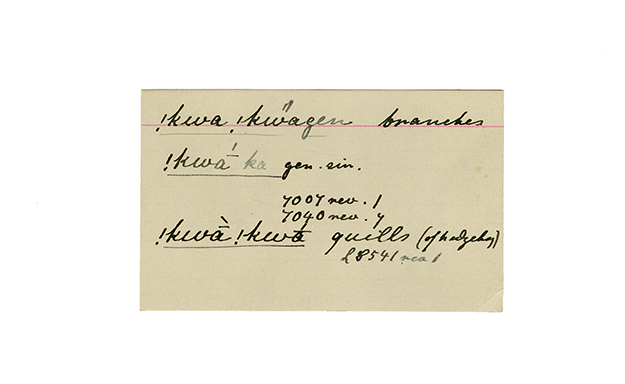 !kwa !kẅagen branches
!kwá ka gen. sin.
7007 rev. 1
7040 rev. 7
!kwà !kwá quills (of hedgehog)
L 8541 rev 1